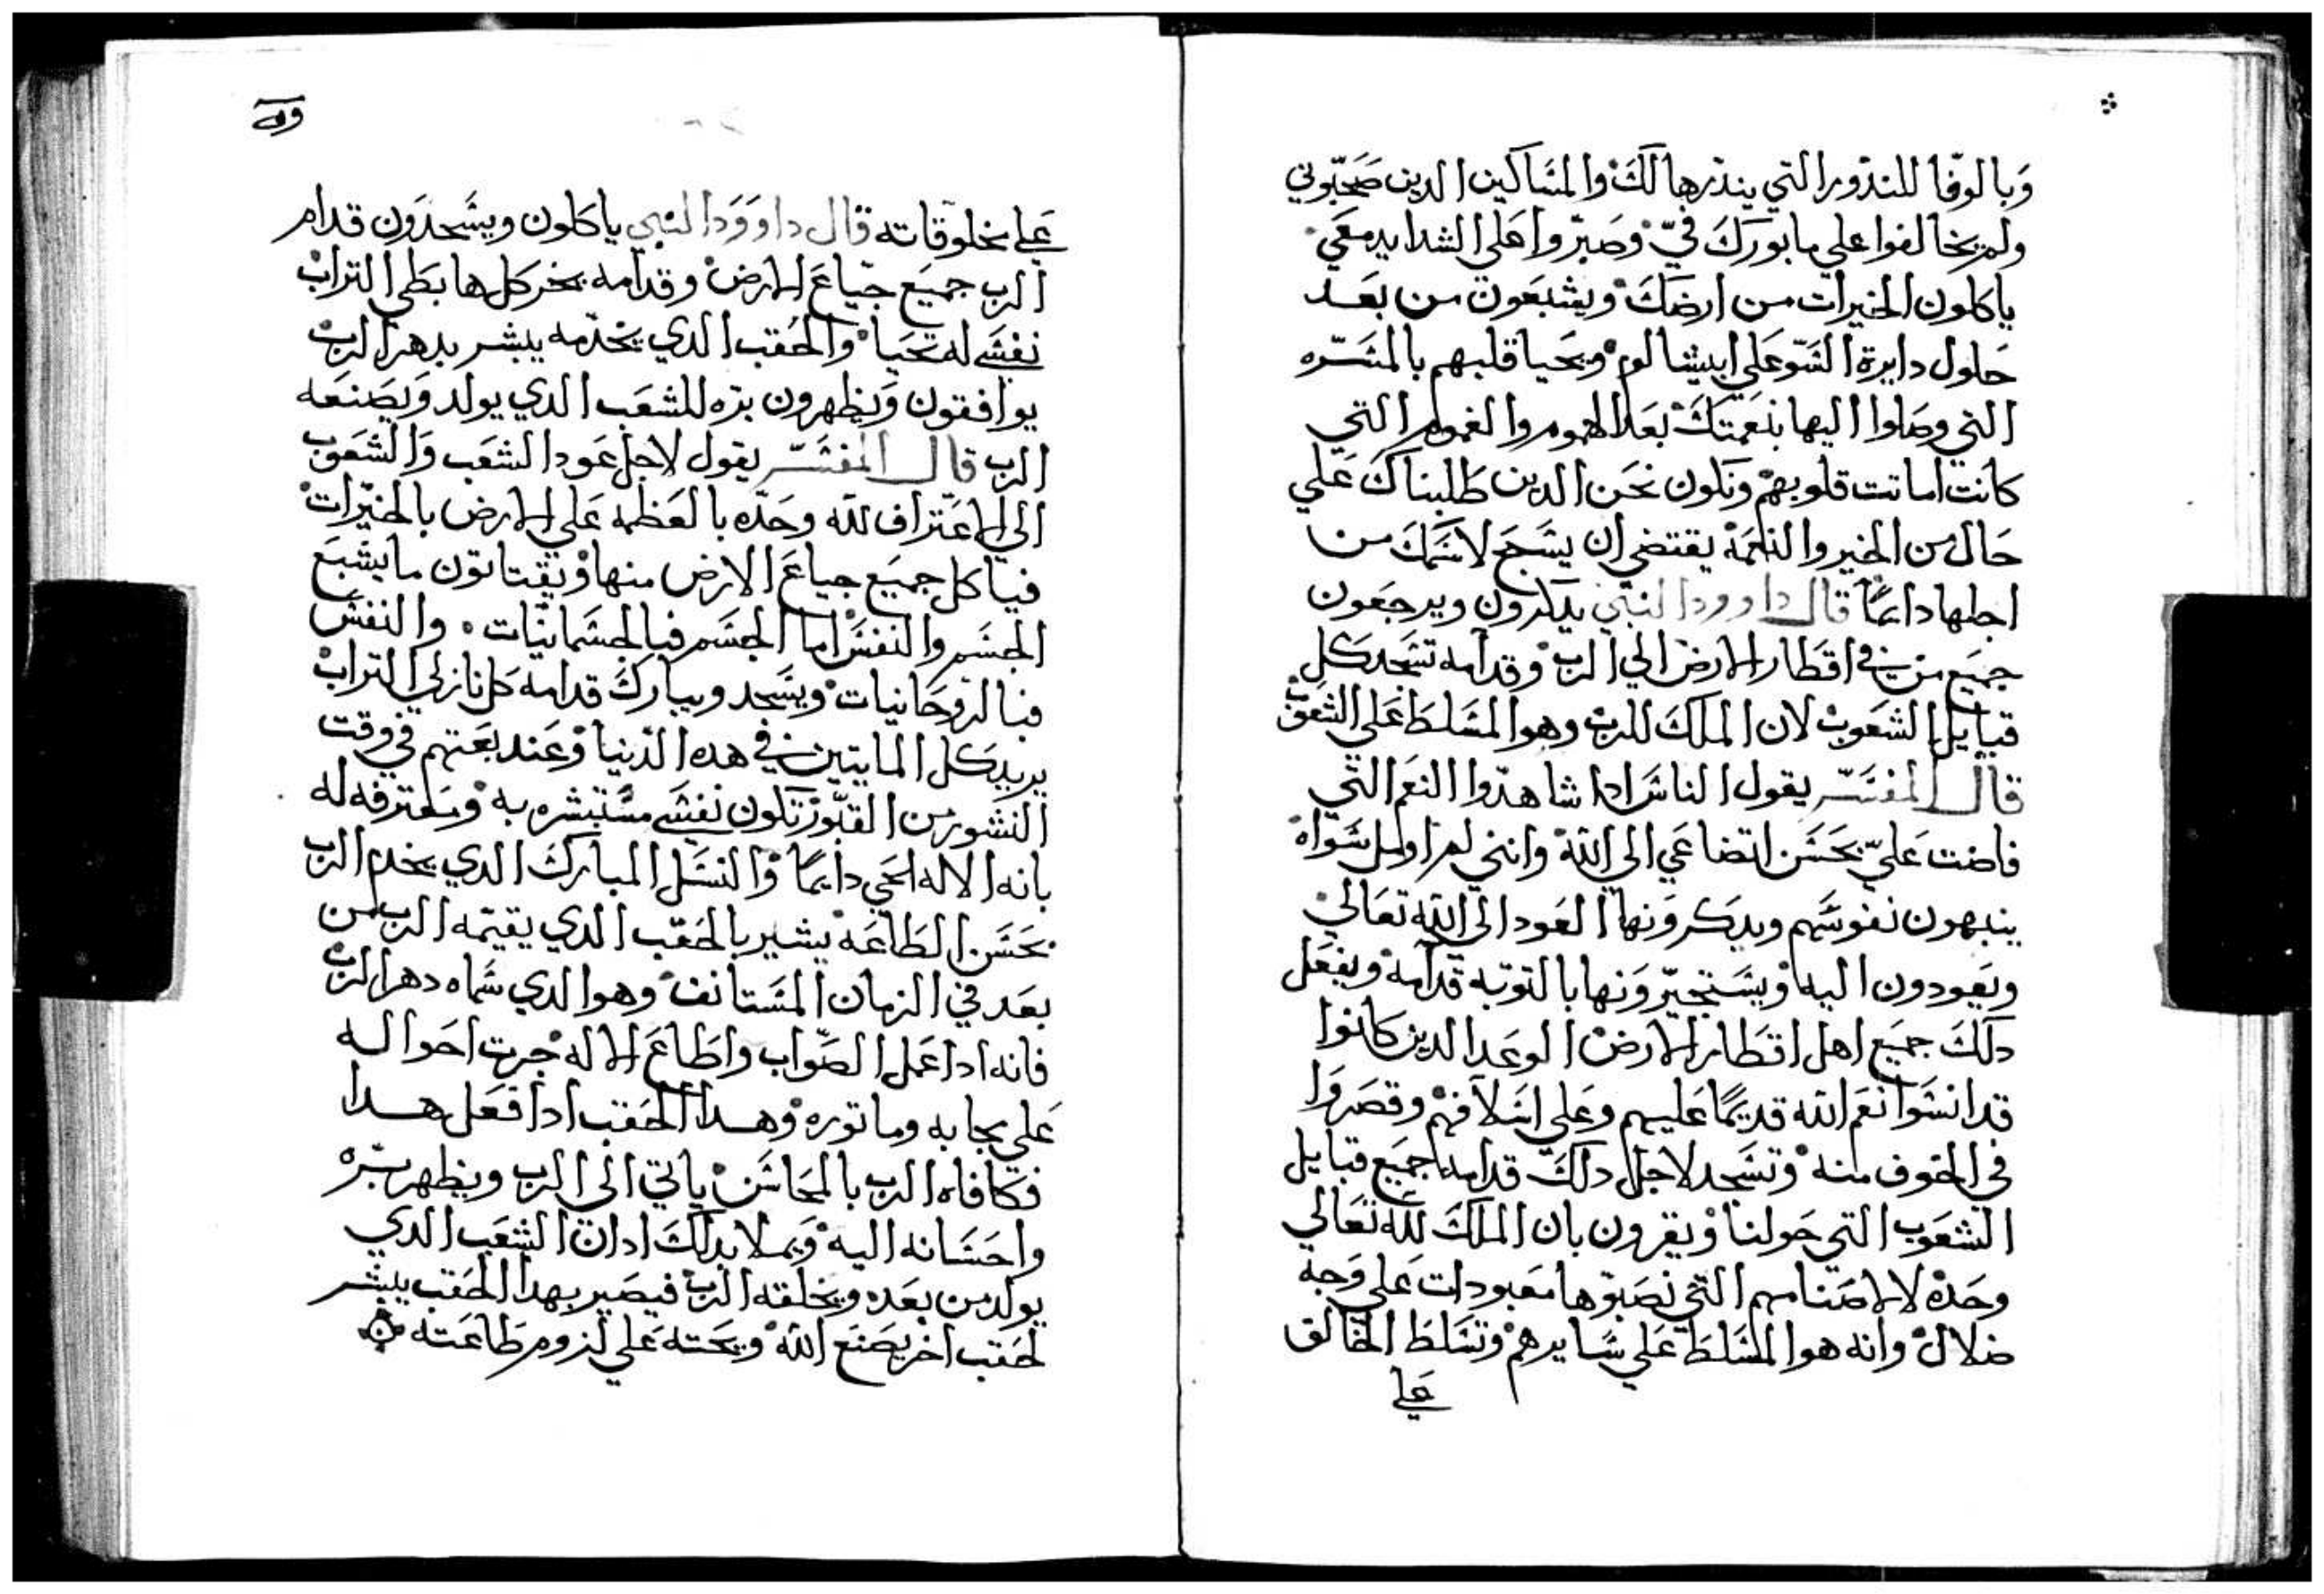 وبالوفا للنذور التي ينذرها لك والمساكين الدين صحبوني
ولم يخالفوا علي ما بورك في وصبروا علي الشدايد معي
ياكلون الخيرات من ارضك ويشبعون من بعد
حلول دايرة السو علي ابيشالوم ويحيا قلبهم بالمسره
التي وصلوا اليها بنعمتك بعد الهموم والغموم التي
كانت اماتت قلوبهم ونكون نحن الدين طلبناك علي
حال من الخير والنعمة يقتضي ان يسبح لاسمك من
اجلها دايما قال داوود النبي يدكرون ويرجعون
جميع من في اقطار الارض الي الرب وقدامه تسجد كل
قبايل الشعوب لان الملك للرب وهو المسلط علي الشعوب
قال المفسر يقول الناس ادا شاهدوا النعم التي
فاضت علي بحسن اتضاعي الي الله وانني لم اومل سواه
ينبهون نفوسهم ويدكرونها العود الي الله تعالي
ويعودون اليه ويستجيرونها بالتوبه قدامه ويفعل
دلك جميع اهل اقطار الارض الوعدا الدين كانوا
قد انسوا نعم الله قديما عليهم وعلي اسلافهم وقصروا
في الخوف منه وتسجد لاجل دلك قدامه جميع قبايل
الشعوب التي حولنا ويقرون بان الملك لله تعالي
وحده لا لاصنامهم التي نصبوها معبودات علي وجه
ضلال وانه هو المسلط علي سايرهم وتسلط الخالق
علي
علي مخلوقاته قال داوود النبي ياكلون ويسجدون قدام
الرب جميع جياع الارض وقدامه يخر كل هابطي التراب
نفسي له تحيا والحقب الدي يخدمه يبشر بدهر الرب
يوافقون ويظهرون بره للشعب الدي يولد ويصنعه
الرب قال المفسر يقول لاجل عود الشعب والشعوب
الي الاعتراف لله وحده بالعظمه علي الارض بالخيرات
فياكل جميع جياع الارض منها ويقتاتون ما يشبع
الجسم والنفس اما الجسم فبالجسمانيات والنفس
فبالروحانيات ويسجد ويبارك قدامه كل نازلي التراب
يريد كل المايتين في هده الدنيا وعند بعتهم في وقت
النشور من القبور تكون نفسي مستبشره به ومعترفه له
بانه الاله الحي دايما والنسل المبارك الدي يخدم الرب
بحسن الطاعه يشير بالحقب الدي يقيمه الرب من
بعد في الزمان المستانف وهو الدي سماه دهر الرب
فانه ادا عمل الصواب واطاع الاله جرت احواله
علي محابه وماتوره وهدا الحقب ادا فعل هدا
فكافاه الرب بالمحاسن ياتي الي الرب ويظهر بره
واحسانه اليه ويملا بدلك ادان الشعب الدي
يولد من بعده ويخلقه الرب فيصير بهدا الحقب يبشر
لحقب اخر يصنع الله ويحته علي لزوم طاعته